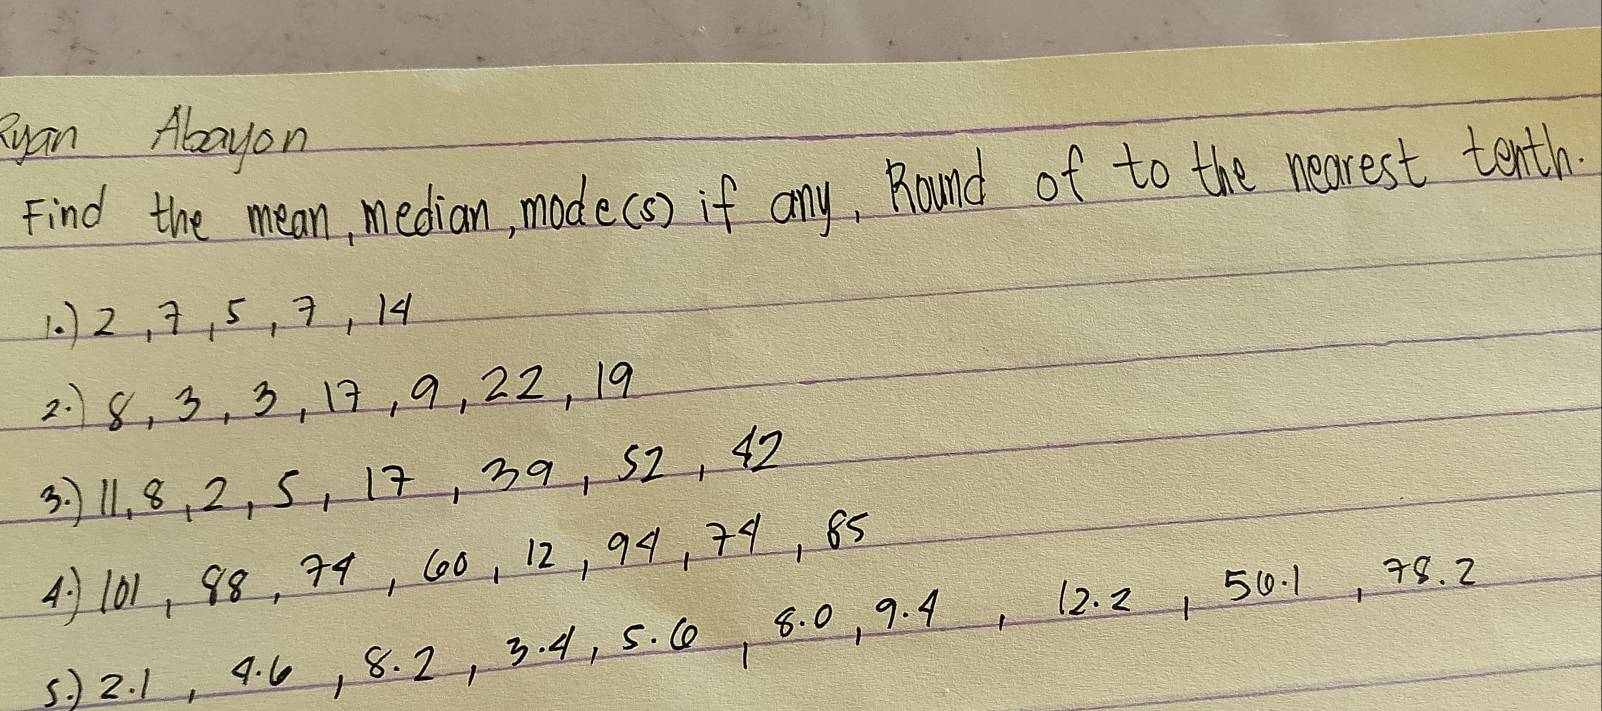 Ryan Abayon
Find the mean, median, mode(s) if any, Round of to the nearest tenth.
1.) 2, 7, 5, 7, 14
2.) 8, 3, 3, 17, 9, 22, 19
3.) 11, 8, 2, 5, 17, 39, 52, 42
4.) 101, 88, 74, 60, 12, 94, 74, 85
5.) 2.1, 4.6, 8.2, 3.4, 5.6, 8.0, 9.4, 12.2, 56.1, 78.2